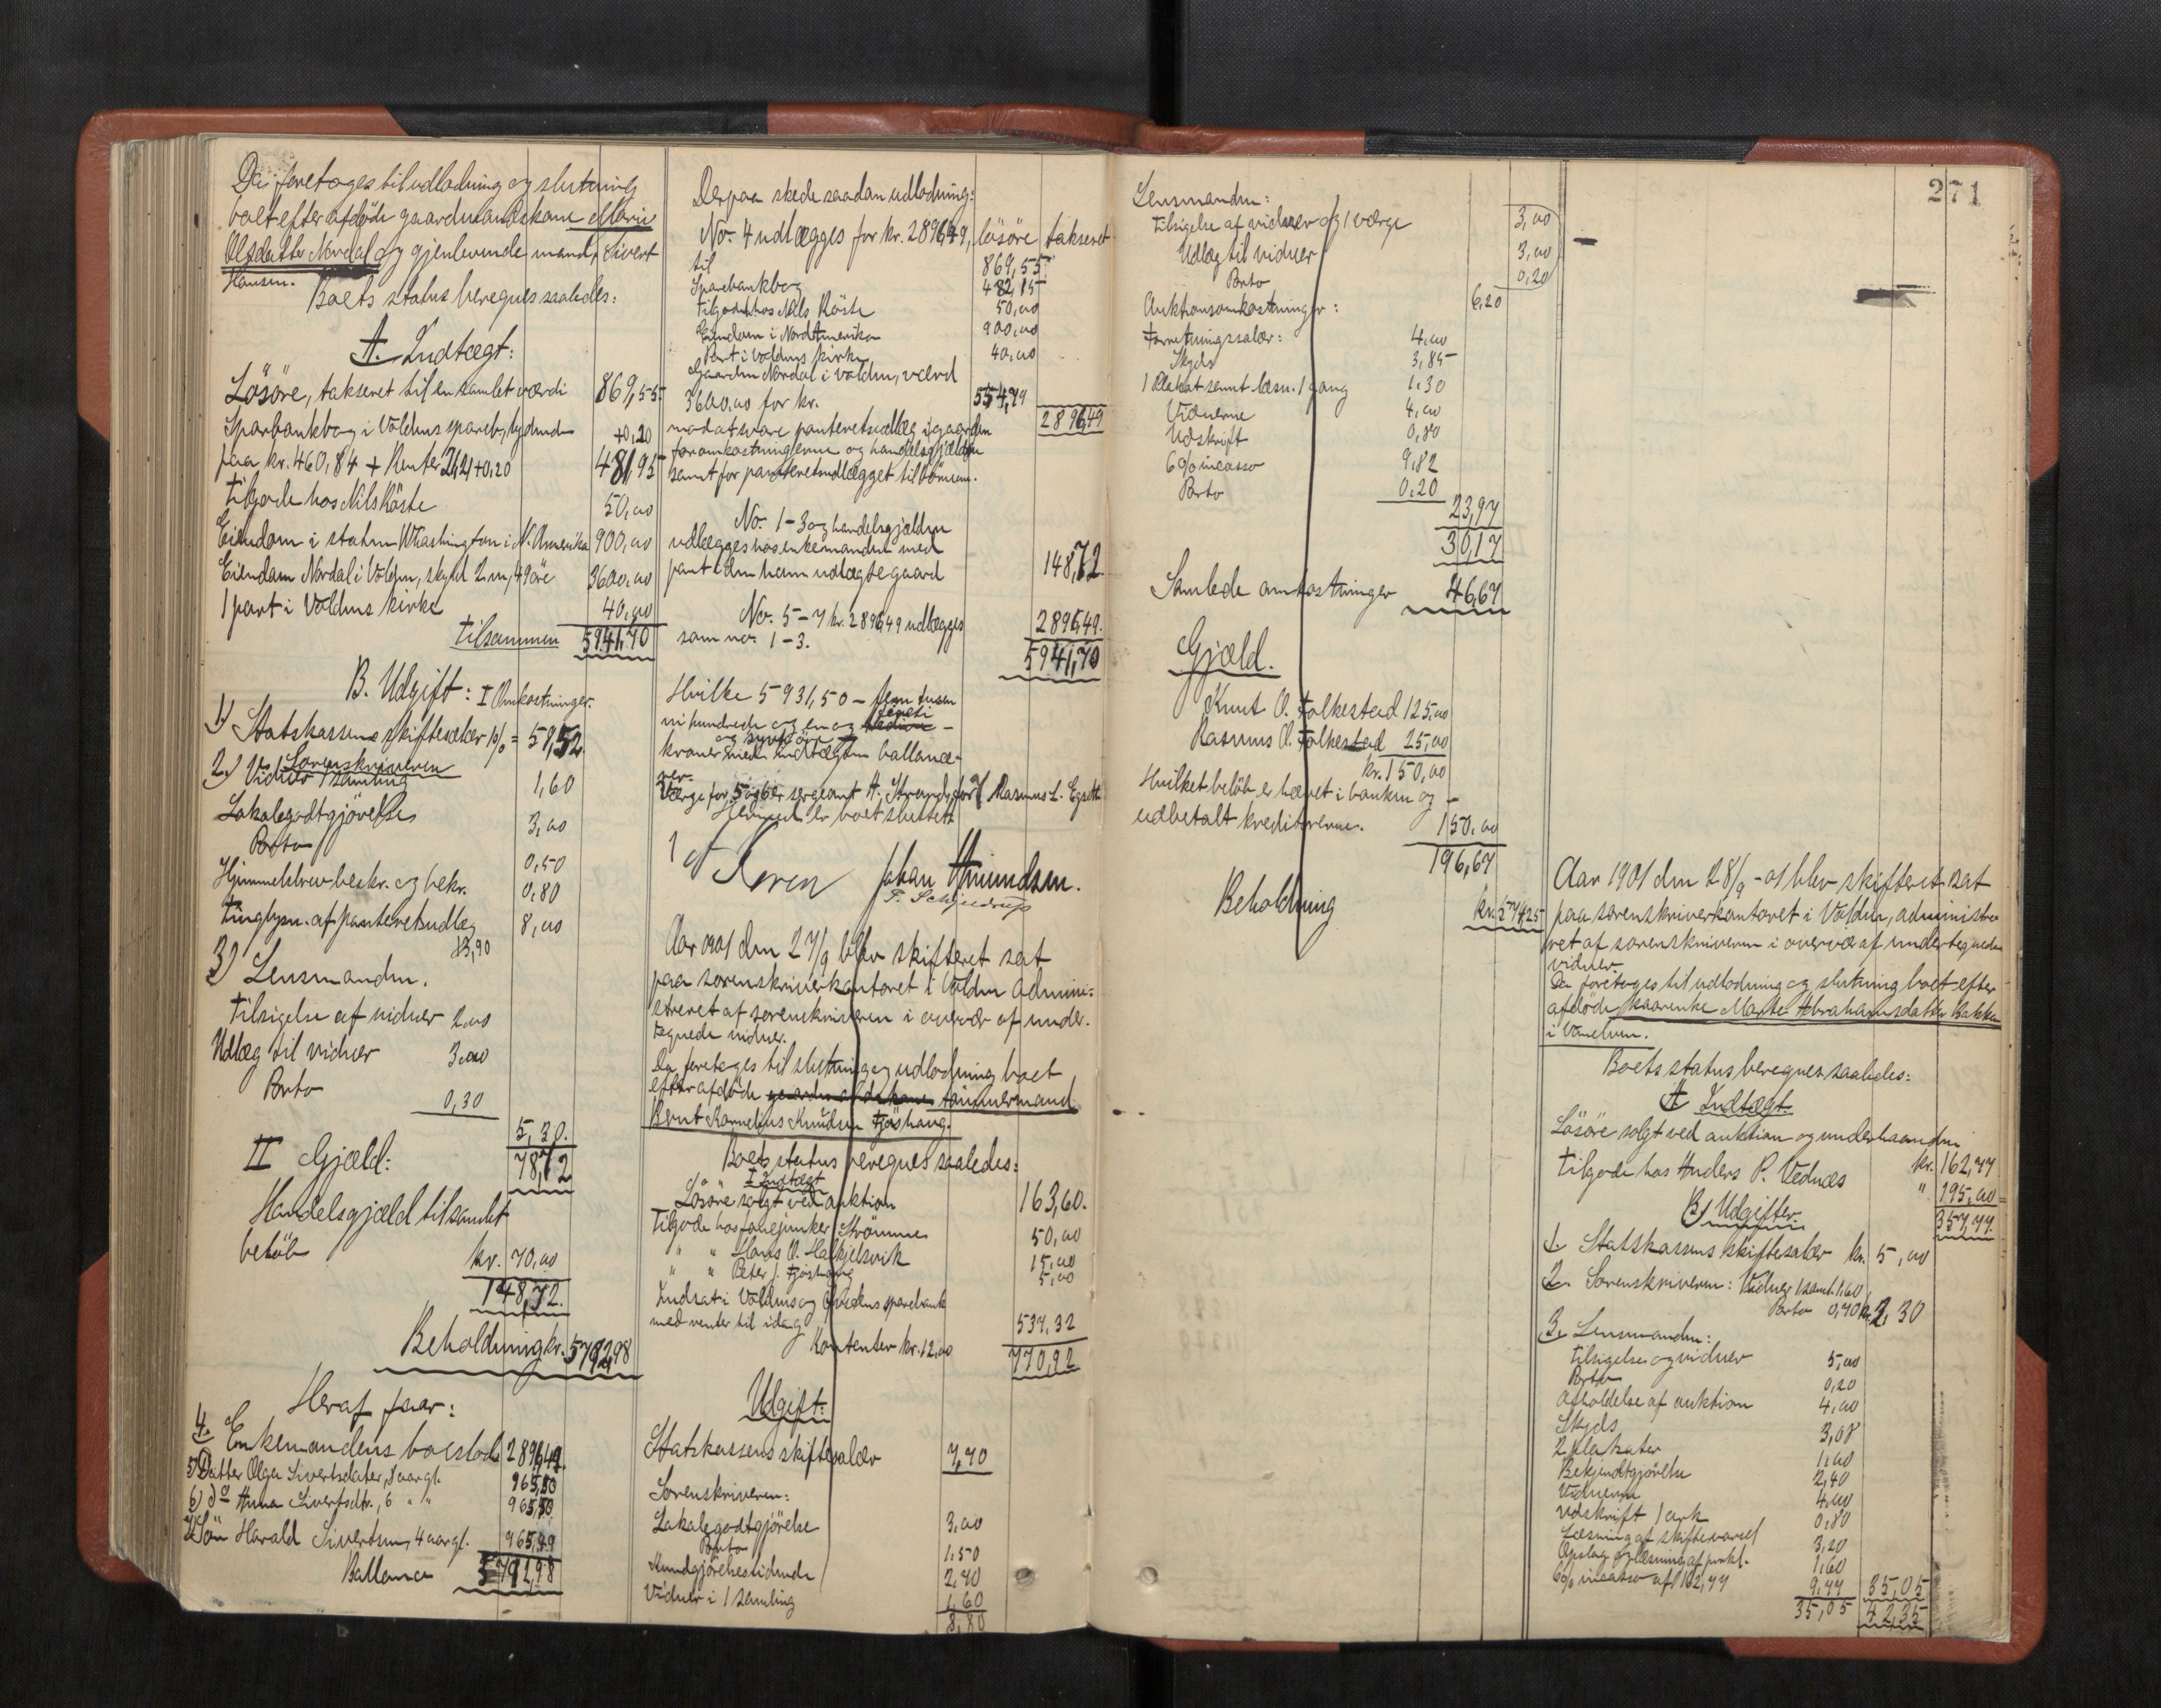 Da foretoges til udlodning og slutning
boet efter afdöde gaardmandskone Marie
Olsdatter Nordal og gjenlevende mand, Sivert
Hansen.
Boets status beregnes saaledes:
A. Indtægt:
Lösöre, taksert til en samlet værdi 869,55
Sparbankbog i Voldens spareb, lydende +0,20
paa kr. 460,84 + Renter 21,21+0,20 481,95
Tilgode hos Nils Röste 50,00
Eiendom i staten Whashington i N. Amerika 900,00
Eiendom Nordal i Volden, skyld 2 m, 49 öre 3600,00
1 part i Voldens kirke 40,00
tilsammen 5941,70
B. Udgift: I Omkostninger.
1) Statskassens skiftesalær 1 % = 58,52
2.) Sorenskriveren
Vidner 1 samling 1,60
Lokalegodtgjörelse 3,00
Porto 0,50
Hjemmelsbrev beskr. og bekr. 0,80
Tinglysn. af panteretsudlæg 8,00
13,90
3) Lensmanden.
Tilsigelse af vidner 2,00
Udlæg til vidner 3,00
Porto 0,30
5,30.
78,72
II Gjæld:
Handelsgjæld til samlet
belöb kr. 70,00
148,72.
Beholdning kr. 5792,98
Heraf faar:
4. Enkemandens boeslod 2896,49.
5) Datter Olga Sivertsdatter, 8 aar gl. 965,50
6) do Anna Sivertsdtr., 6 " " 965,50
7) Sön Harald Sivertsen, 4 aar gl. 965,49
Ballance 5792,98
Derpaa skede saadan udlodning:
No. 4 udlægges for kr. 2896,49, lösöre takseret
til 869,55
Sparebankbog 482,15
Tilgode hos Nils Röste 50,00
Eiendom i NordAmerika 900,00
Part i Voldens kirke 40,00
Gaarden Nordal i Volden, værd
3600.00 for kr. 554,79
2896,49
mod at svare panteretsudlæg i gaarden
for omkostningerne og handelsgjælden
samt for panteretsudlægget til börnene.
No. 1-3 og handelsgjælden
udlægges hos enkemanden med
pant i den ham udlagte gaard 148,72
No. 5-7 kr. 2896,49 udlægges
som no. 1-3. 2896,49.
5941,70
Hvilke 5931,50 - fem tusen
nihundrede og en og
kroner med indtægten ballance-
rer.
Værge for 5 og 6 er sergeant A. Strand, for 7 Rasmus L. Egsett
Hermed er boet sluttet
Koren Johan Amundsen.
F. Schjelderup
Aar 1901 den 27/9 blev skifteret sat
paa sorenskriverkontoret i Volden admini-
streret af sorenskriveren i overvær af under-
tegnede vidner.
Da foretoges til slutning og udlodning boet
efter afdöde gaardmandskone tömmermand
Bernt Kornelius Knudsen Fjöshaug.
Boets status beregnes saaledes:
I Indtægt
Lösöre solgt ved auktion 163,60.
Tilgode hos fanejunker Strömme 50,00
" " Hans O. Halkjelsvik 15,00
" " Peter J. Fjöshaug 5,00
Indsat i Voldens og Örstens sparebank
med renter til idag 537,32
Kontenter kr. 12,00
770,92
Udgift:
Statskassens skiftesalær 7,70
Sorenskriveren:
Lokalegodtgjörelse 3,00
Porto 1.50
Kundgjörelsestidende 2,70
Vidner i 1 samling 1,60
8,80
271
Lensmanden:
Tilsigelse af vidner og 1 værge 3,00
Udlæg til vidner 3,00
Porto 0,20
6,20
Auktionsomkostninger:
Forretningssalær: 4,00
Skyds 3,85
1 Plakat samt læsn. 1 gang 1.30
Vidnerne 4,00
Udskrift 0,80
6 % incasso 9,82
Porto 0,20
23,97
30,17
Samlede omkostninger 46,67
Gjæld.
Knut O. Folkestad 125,00
Rasmus O. Folkestad 25,00
kr. 150,00
Hvilket belöb er hævet i banken og
udbetalt kreditorerne. 150.00
196,67
Beholdning kr. 574,25
Aar 1901 den 28/9 - 01 blev skifteret sat
paa sorenskriverkontoret i Volden, administre
ret af sorenskriveren i overvær af undertegnede
vidner.
Da foretoges til udlodning og slutning boet efter
afdöde kaarenke Marte Abrahamsdatter Bakke
i Vanelven.
Boets status beregnes saaledes:
A Indtægt.
Lösöre solgt ved auktion og underhaanden
kr. 162,77
Tilgode hos Anders P. Vednes " 195,00
357,77.
B) Udgifter.
1. Statskassens skiftesalær kr. 5,00
2. Sorenskriveren: Vidner 1 saml. 1.60
Porto 0,70 kr. 2,30
3. Lensmanden:
Tilsigelse og vidner 5,00
Porto 0,20
Afholdelse af auktion 4,00
Skyds 3,08
2 plakater 1,00
Bekjendtgjörelse 2,40
Vidnerne 4,00
Udskrift 1 ark 0,80
Læsning af skiftevarsel 3,20
Opslag og læsning af prokl. 1,60
6% incasso af 162,77 9,77 35,05
35,05 42,35